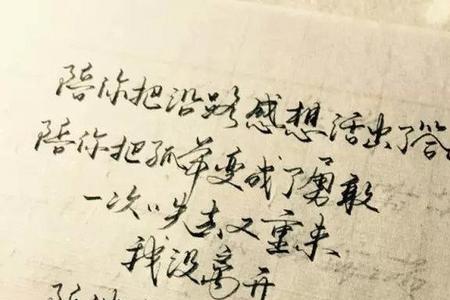 陪你把沿路感想活出了答
陪你把孤单变成了勇敢
一次〃失去又重来
我没离开